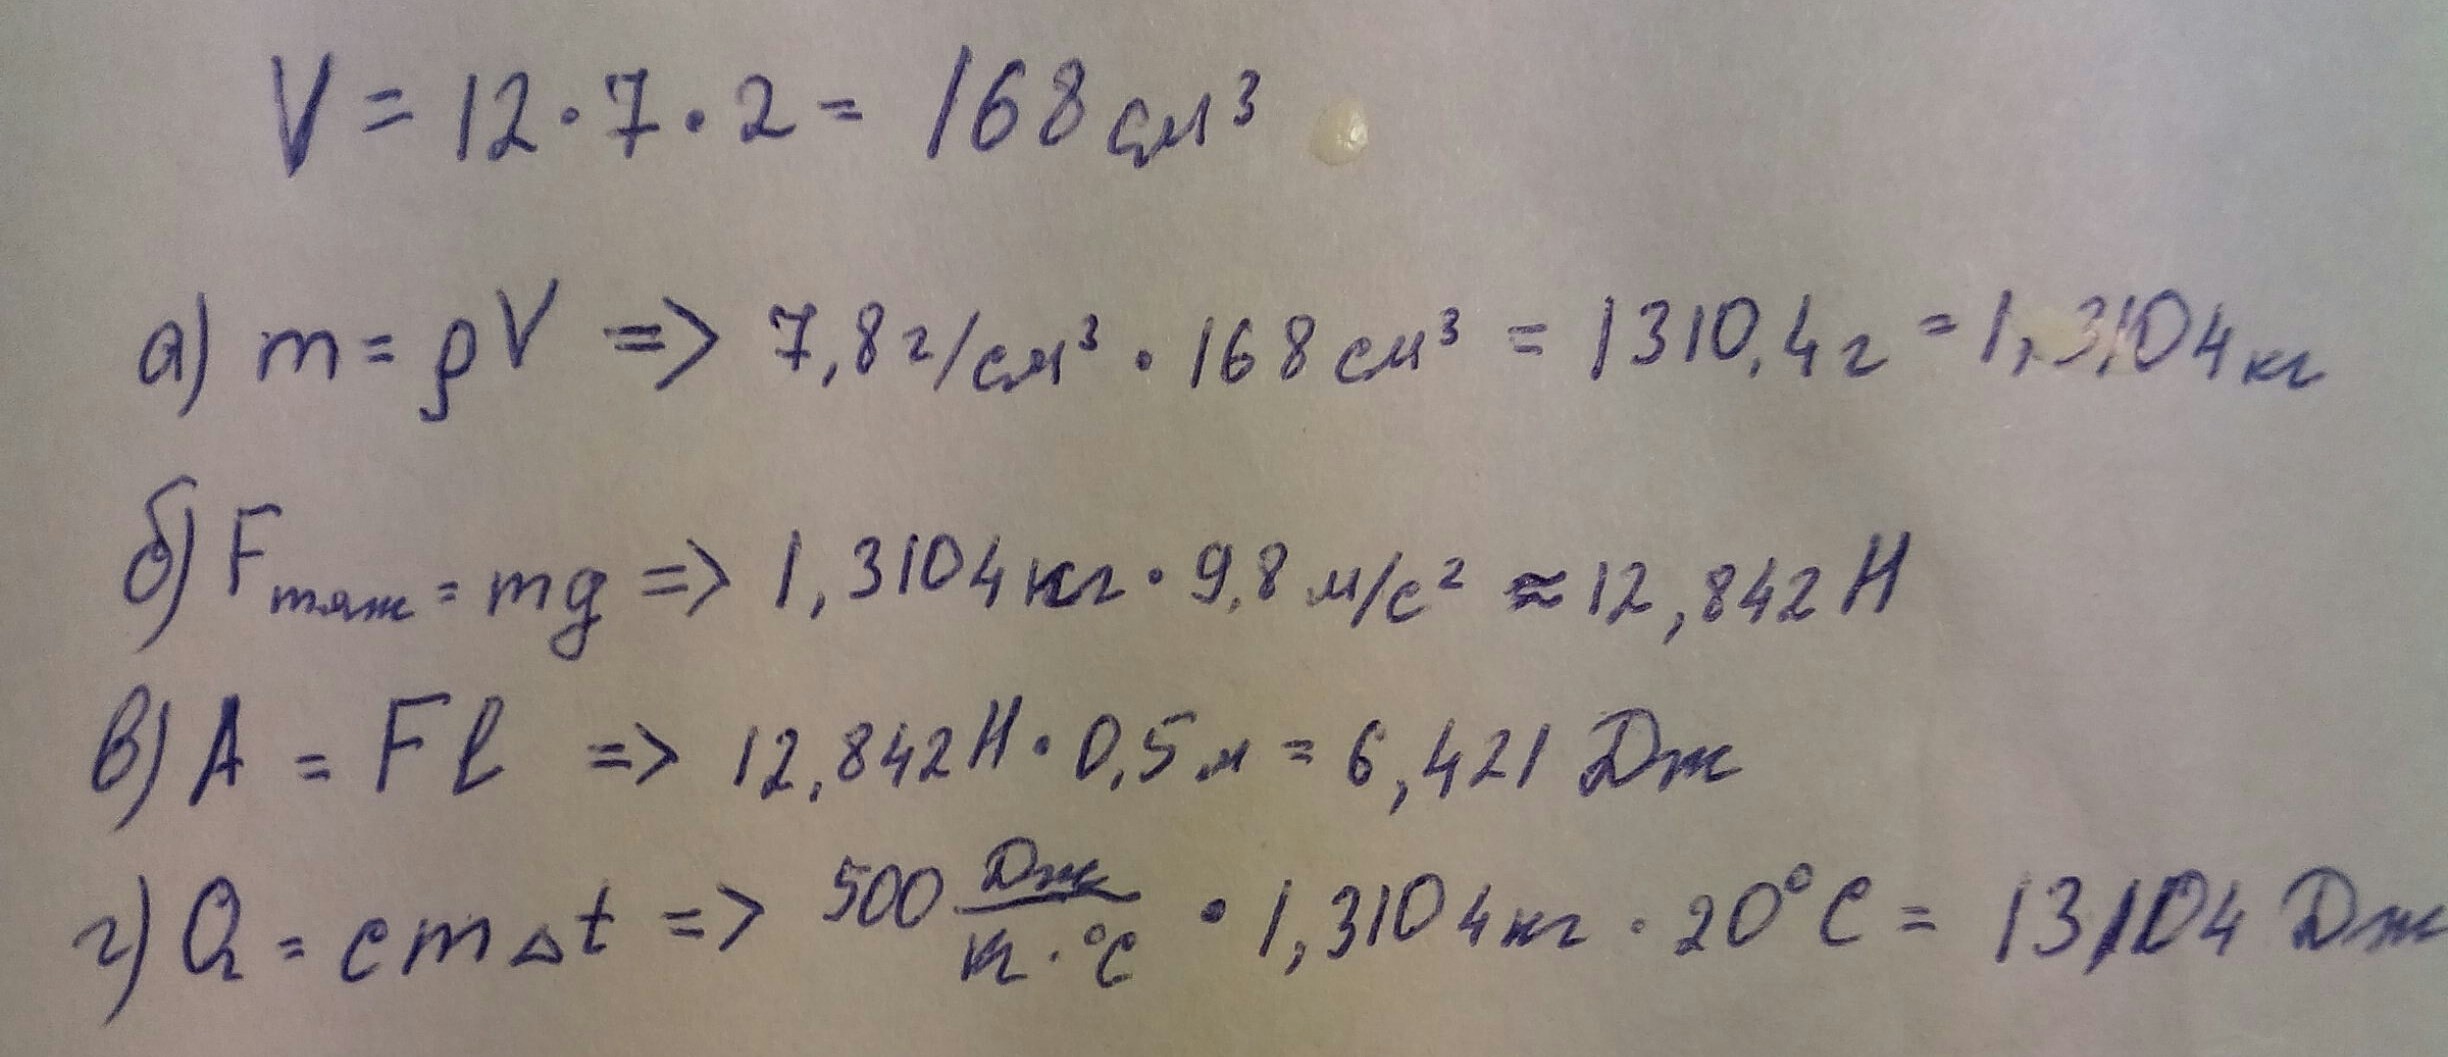 V = 12 · 7 · 2 = 168 см³
а) m = ρV => 7,8 г/см³ · 168 см³ = 1310,4 г = 1,3104 кг
б) Fтяж = mg => 1,3104 кг · 9,8 м/с² ≈ 12,842 Н
в) A = Fl => 12,842 Н · 0,5 м = 6,421 Дж
г) Q = cm△t => 500 Дж/кг·°C · 1,3104 кг · 20°C = 13104 Дж